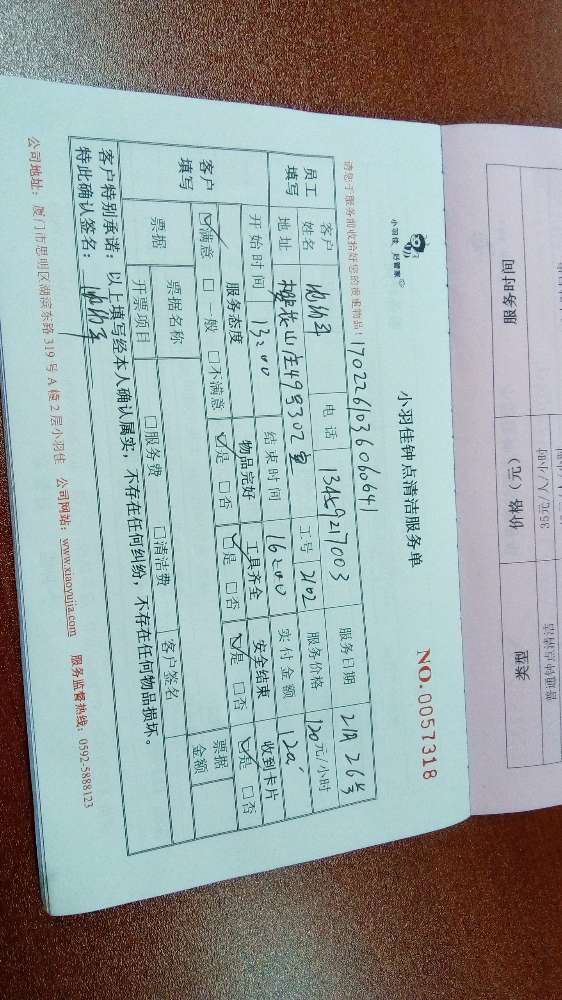 小羽佳 好管家
小羽佳钟点清洁服务单
NO.0057318
请您于服务前收拾好您的贵重物品！
170226103606064
员工填写
客户姓名
电话
服务日期 2月26号
地址
工号 2102
服务价格 120元/小时
开始时间 13:00
结束时间 16:00
实付金额 120
客户填写
服务态度
物品完好
工具齐全
安全结束
收到卡片
☑满意 □一般 □不满意
☑是 □否
☑是 □否
☑是 □否
☑是 □否
票据
票据名称
客户签名
票据金额
开票项目
□服务费 □清洁费
客户特别承诺：以上填写经本人确认属实，不存在任何纠纷，不存在任何物品损坏。
特此确认签名：
公司地址：厦门市思明区湖滨东路 319 号 A 幢 2 层小羽佳 公司网站：www.xiaoyujia.com 服务监督热线：0592-5888123
类型
价格（元）
服务时间
普通钟点清洁
35元/人/小时